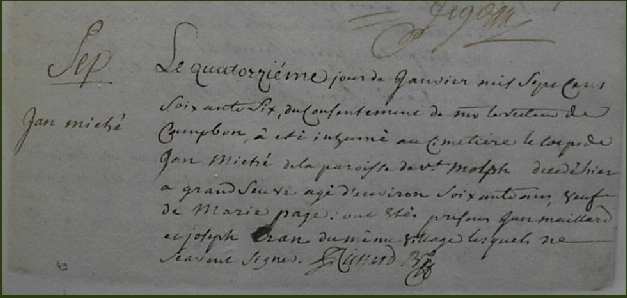 Sep
Jan miché
Le quatorziéme jour de Janvier mil Sept Cens
Soixante Six, du Consentement de mr le recteur de
Campbon, a été inhumé au Cimetiere le corps de
Jan Miché de la paroisse de St. Molph decedé hier
a grand agé d'environ Soixante ans, veuf
de Marie page: ont étés presens Jan maillard
et joseph du même village lesquels ne
scavent Signer.